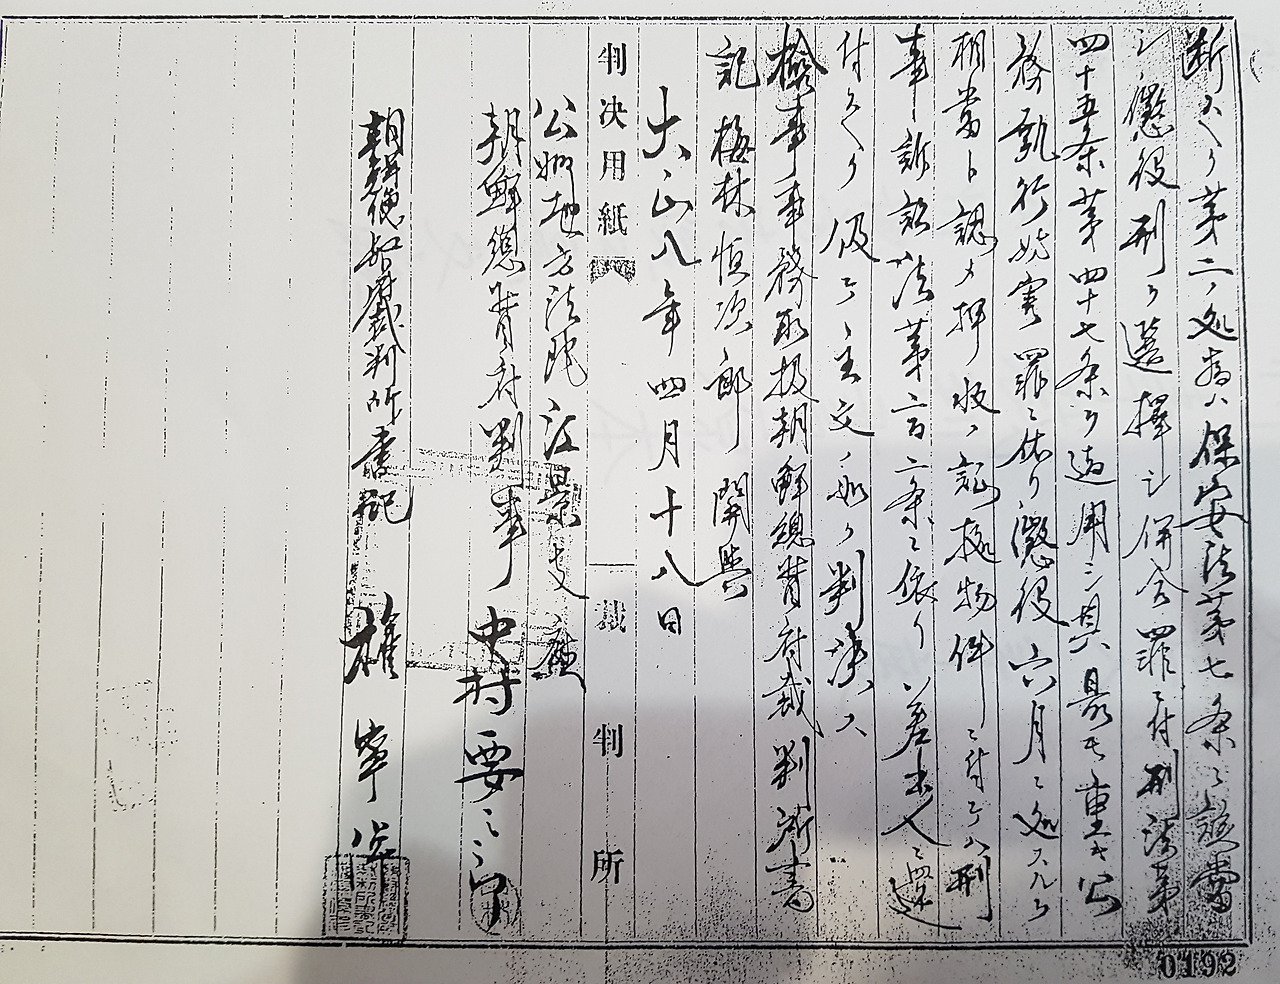 断スヘク第二ノ処為ハ保安法第七条ニ該当
シ懲役刑ヲ選択シ併合罪ニ付刑法第
四十五条第四十七条ヲ適用シ其最モ重キ公
務執行妨害罪ニ依リ懲役六月ニ処スルヲ
相当ト認メ押収ノ証拠物件ニ付テハ刑
事訴訟法第二百二条ニ依リ差出人ニ還
付スヘク仍テ主文ノ如ク判決ス
検事事務取扱朝鮮総督府裁判所書
記梅林恒次郎関与
大正八年四月十八日
判決用紙 裁判所
公州地方法院江景支庁
朝鮮総督府判事 中村要之
朝鮮総督府裁判所書記 権寧
0192